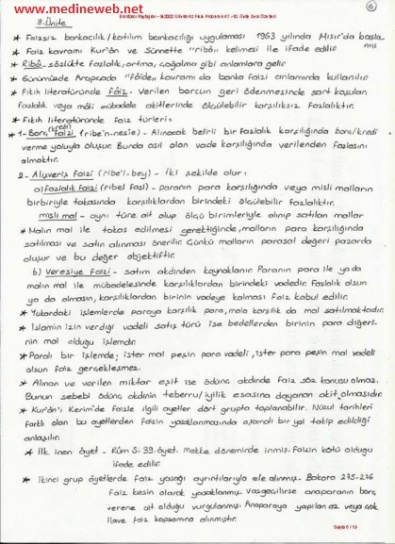 www.medineweb.net
6
8.Ünite
* Faizsiz bankacılık/katılım bankacılığı uygulaması 1963 yılında Mısır'da başla
mış
* Faiz kavramı Kur'ân ve Sünnette "ribâ" kelimesi ile ifade edilir
* Ribâ-sözlükte fazlalık, artma, çoğalma gibi anlamlara gelir
* Günümüzde Arapçada "fâide" kavramı da banka faizi anlamında kullanılır
* Fıkıh literatüründe Fâiz: Verilen borcun geri ödenmesinde şart koşulan
fazlalık veya mâli mübadele akitlerinde ölçülebilir karşılıksız fazlalıktır.
* Fıkıh literatüründe faiz türleri:
(kredi)
* 1-Borç faizi (ribe'n-nesîe) - Alınacak belirli bir fazlalık karşılığında borç/kredi
verme yoluyla oluşur. Bunda asıl olan vade karşılığında verilenden fazlasını
almaktır.
2- Alışveriş faizi (ribe'l-bey) - İki şekilde olur:
a) Fazlalık faizi (ribel fazl) - paranın para karşılığında veya misli malların
birbiriyle takasında karşılıklardan birindeki ölçülebilir fazlalıktır.
misli mal - aynı türe ait olup ölçü birimleriyle alınıp satılan mallar
* Malın mal ile takas edilmesi gerektiğinde, malların para karşılığında
satılması ve satın alınması önerilir. Çünkü malların parasal değeri pazarda
oluşur ve bu değer objektiftir.
b) Veresiye faizi - satım akdinden kaynaklanır. Paranın para ile ya da
malın mal ile mübadelesinde karşılıklardan birindeki vadedir. Fazlalık olsun
ya da olmasın, karşılıklardan birinin vadeye kalması faiz kabul edilir.
* Yukardaki işlemlerde paraya karşılık para, mala karşılık da mal satılmaktadır.
* İslamın izin verdiği vadeli satış türü ise bedellerden birinin para diğeri-
nin mal olduğu işlemdir
* Paralı bir işlemde; ister mal peşin para vadeli, ister para peşin mal vadeli
olsun faiz gerçekleşmez.
* Alınan ve verilen miktar eşit ise ödünç akdinde faiz söz konusu olmaz.
Bunun sebebi ödünç akdinin teberru/iyilik esasına dayanan akit olmasıdır
* Kur'ân'ı Kerim'de faizle ilgili ayetler dört grupta toplanabilir. Nüzul tarihleri
farklı olan bu ayetlerden faizin yasaklanmasında aşamalı bir yol takip edildiği
anlaşılır.
* İlk inen âyet - Rûm S. 39. âyet. Mekke döneminde inmiş. Faizin kötü olduğu
ifade edilir
* İkinci grup âyetlerde faiz yasağı ayrıntılarıyla ele alınmış. Bakara 275-276
faiz kesin olarak yasaklanmış. Vazgeçilirse anaparanın borç
verene ait olduğu vurgulanmış. Anaparaya yapılan az veya çok
ilave faiz kapsamına alınmıştır.
Sayfa 6 / 13